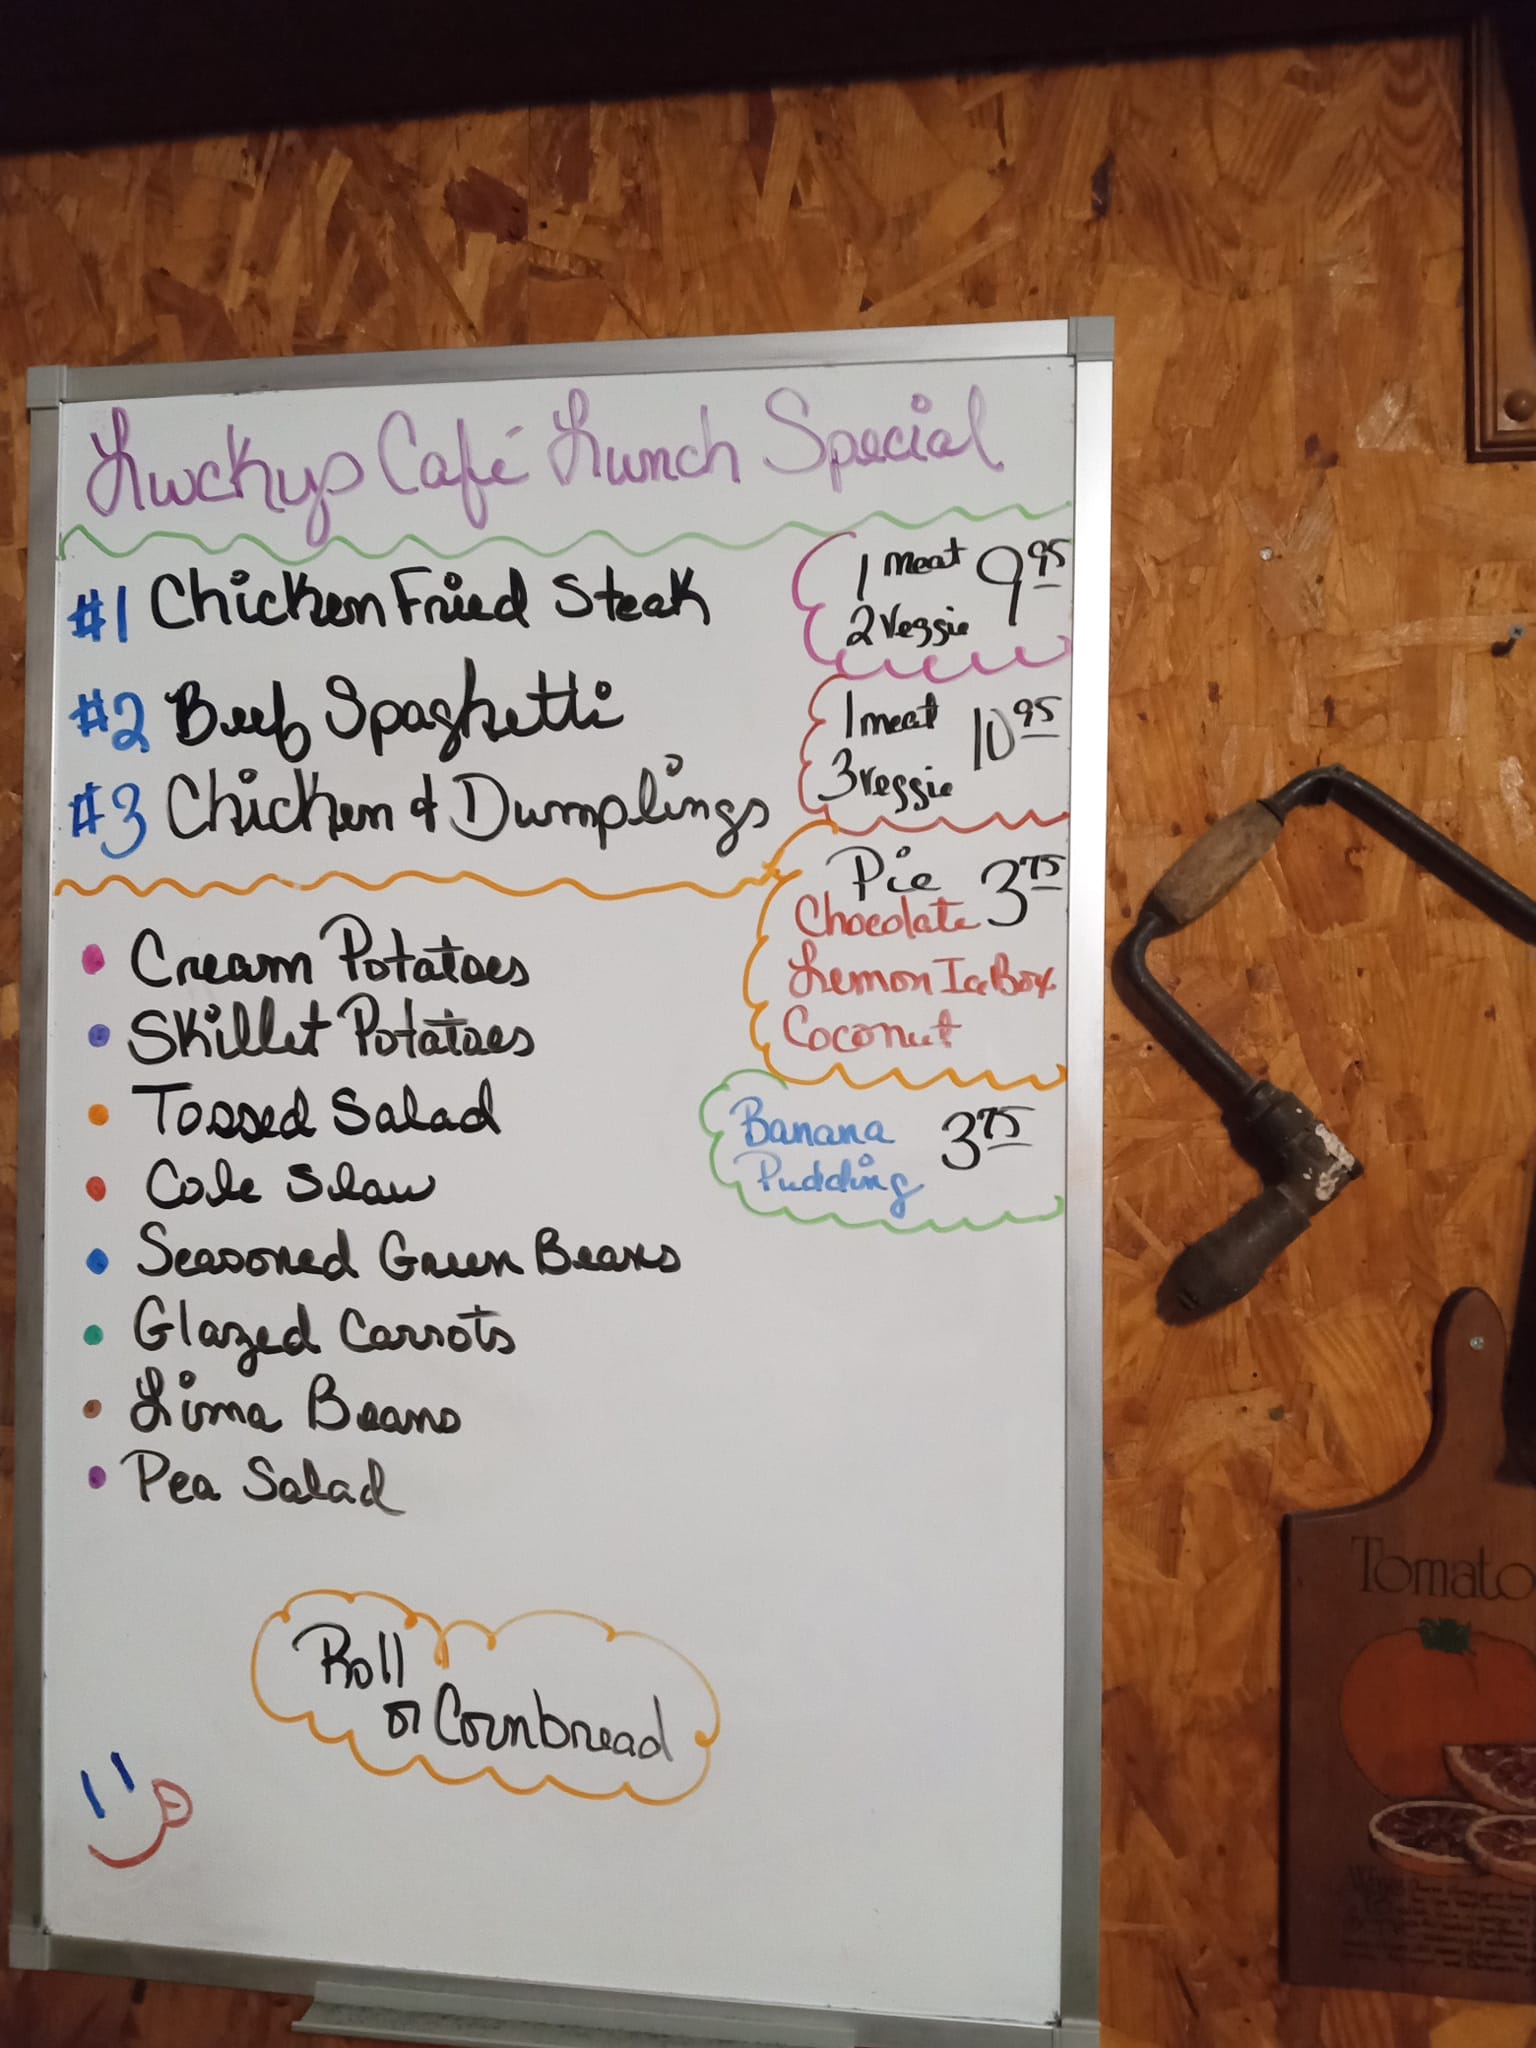 Luckys Café Lunch Special
#1 Chicken Fried Steak
#2 Beef Spaghetti
#3 Chicken & Dumplings
1 meat 9 95
2 Veggie
1 meat 10 95
3 Veggie
Pie 3 75
Chocolate
Lemon Ice Box
Coconut
Banana
Pudding 3 75
• Cream Potatoes
• Skillet Potatoes
• Tossed Salad
• Cole Slaw
• Seasoned Green Beans
• Glazed Carrots
• Lima Beans
• Pea Salad
Roll
or Cornbread
Tomato